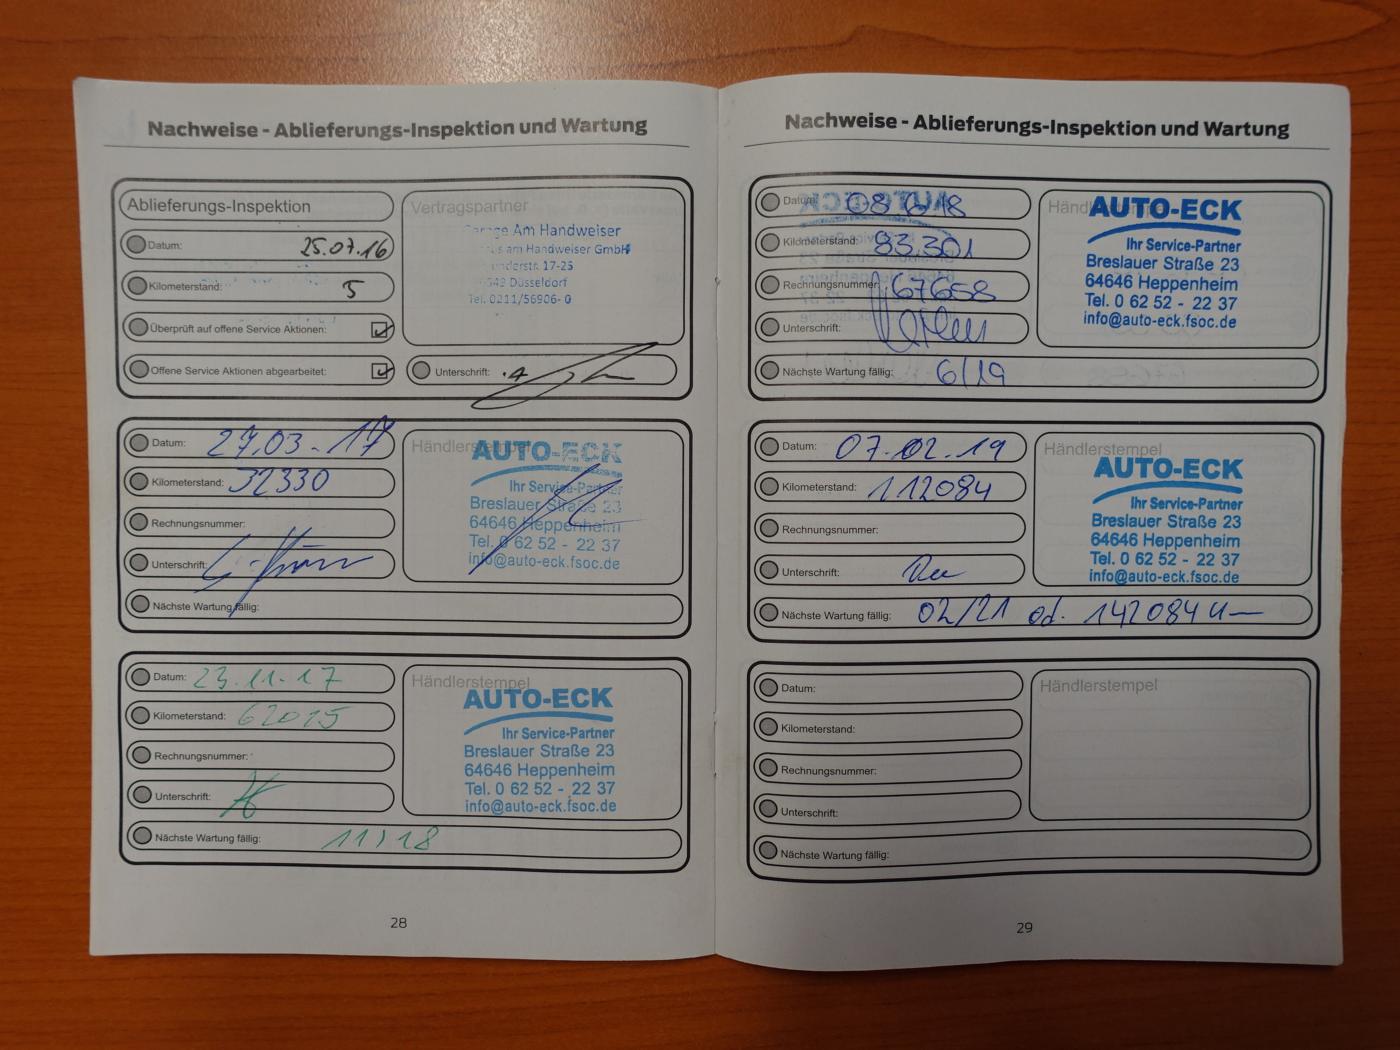 Nachweise - Ablieferungs-Inspektion und Wartung
Ablieferungs-Inspektion
Datum: 25.07.16
Kilometerstand: 5
Überprüft auf offene Service Aktionen:
Offene Service Aktionen abgearbeitet:
Vertragspartner
Am Handweiser
am Handweiser GmbH
17-25
Düsseldorf
Tel. 0211/56906- 0
Unterschrift:
Datum: 27.03.17
Kilometerstand: 32330
Rechnungsnummer:
Unterschrift:
Nächste Wartung fällig:
Händlerstempel
AUTO-ECK
Ihr Service-Partner
Breslauer Straße 23
64646 Heppenheim
Tel. 0 62 52 - 22 37
info@auto-eck.fsoc.de
Datum: 23.11.17
Kilometerstand: 62015
Rechnungsnummer:
Unterschrift:
Nächste Wartung fällig: 11/18
Händlerstempel
AUTO-ECK
Ihr Service-Partner
Breslauer Straße 23
64646 Heppenheim
Tel. 0 62 52 - 22 37
info@auto-eck.fsoc.de
28
Nachweise - Ablieferungs-Inspektion und Wartung
Datum:
Kilometerstand: 83.301
Rechnungsnummer: 67658
Unterschrift:
Nächste Wartung fällig: 6/19
AUTO-ECK
Ihr Service-Partner
Breslauer Straße 23
64646 Heppenheim
Tel. 0 62 52 - 22 37
info@auto-eck.fsoc.de
Datum: 07.02.19
Kilometerstand: 112084
Rechnungsnummer:
Unterschrift:
Nächste Wartung fällig: 02/21 od. 142084
Händlerstempel
AUTO-ECK
Ihr Service-Partner
Breslauer Straße 23
64646 Heppenheim
Tel. 0 62 52 - 22 37
info@auto-eck.fsoc.de
Datum:
Kilometerstand:
Rechnungsnummer:
Unterschrift:
Nächste Wartung fällig:
Händlerstempel
29